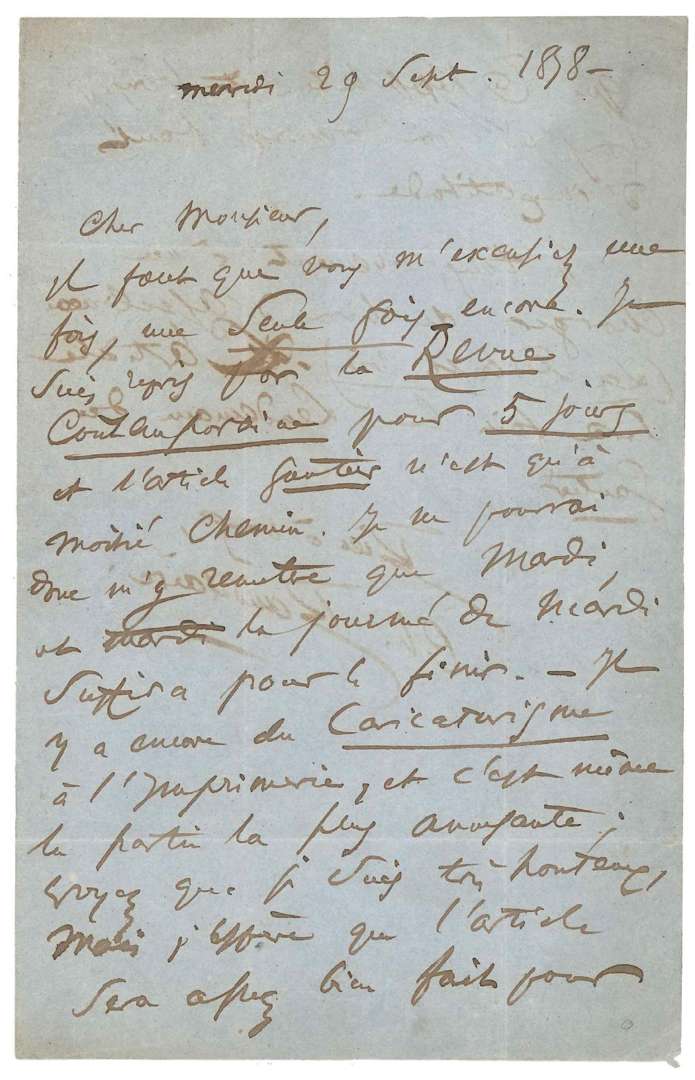 mercredi 29 Sept. 1858 –
Cher Monsieur,
Il faut que vous m'excusiez une
fois, une seule fois encore. Je
suis repris par la Revue
Contemporaine pour 5 jours
et l'article Gautier n'est qu'à
moitié chemin. Je ne pourrai
donc m'y remettre que Mardi,
et mardi la journée de Mardi
suffira pour le finir. – Il
y a encore du Caricaturisme
à l'Imprimerie, et c'est même
la partie la plus amusante ;
croyez que je suis très honteux,
Mais j'espère que l'article
sera assez bien fait pour